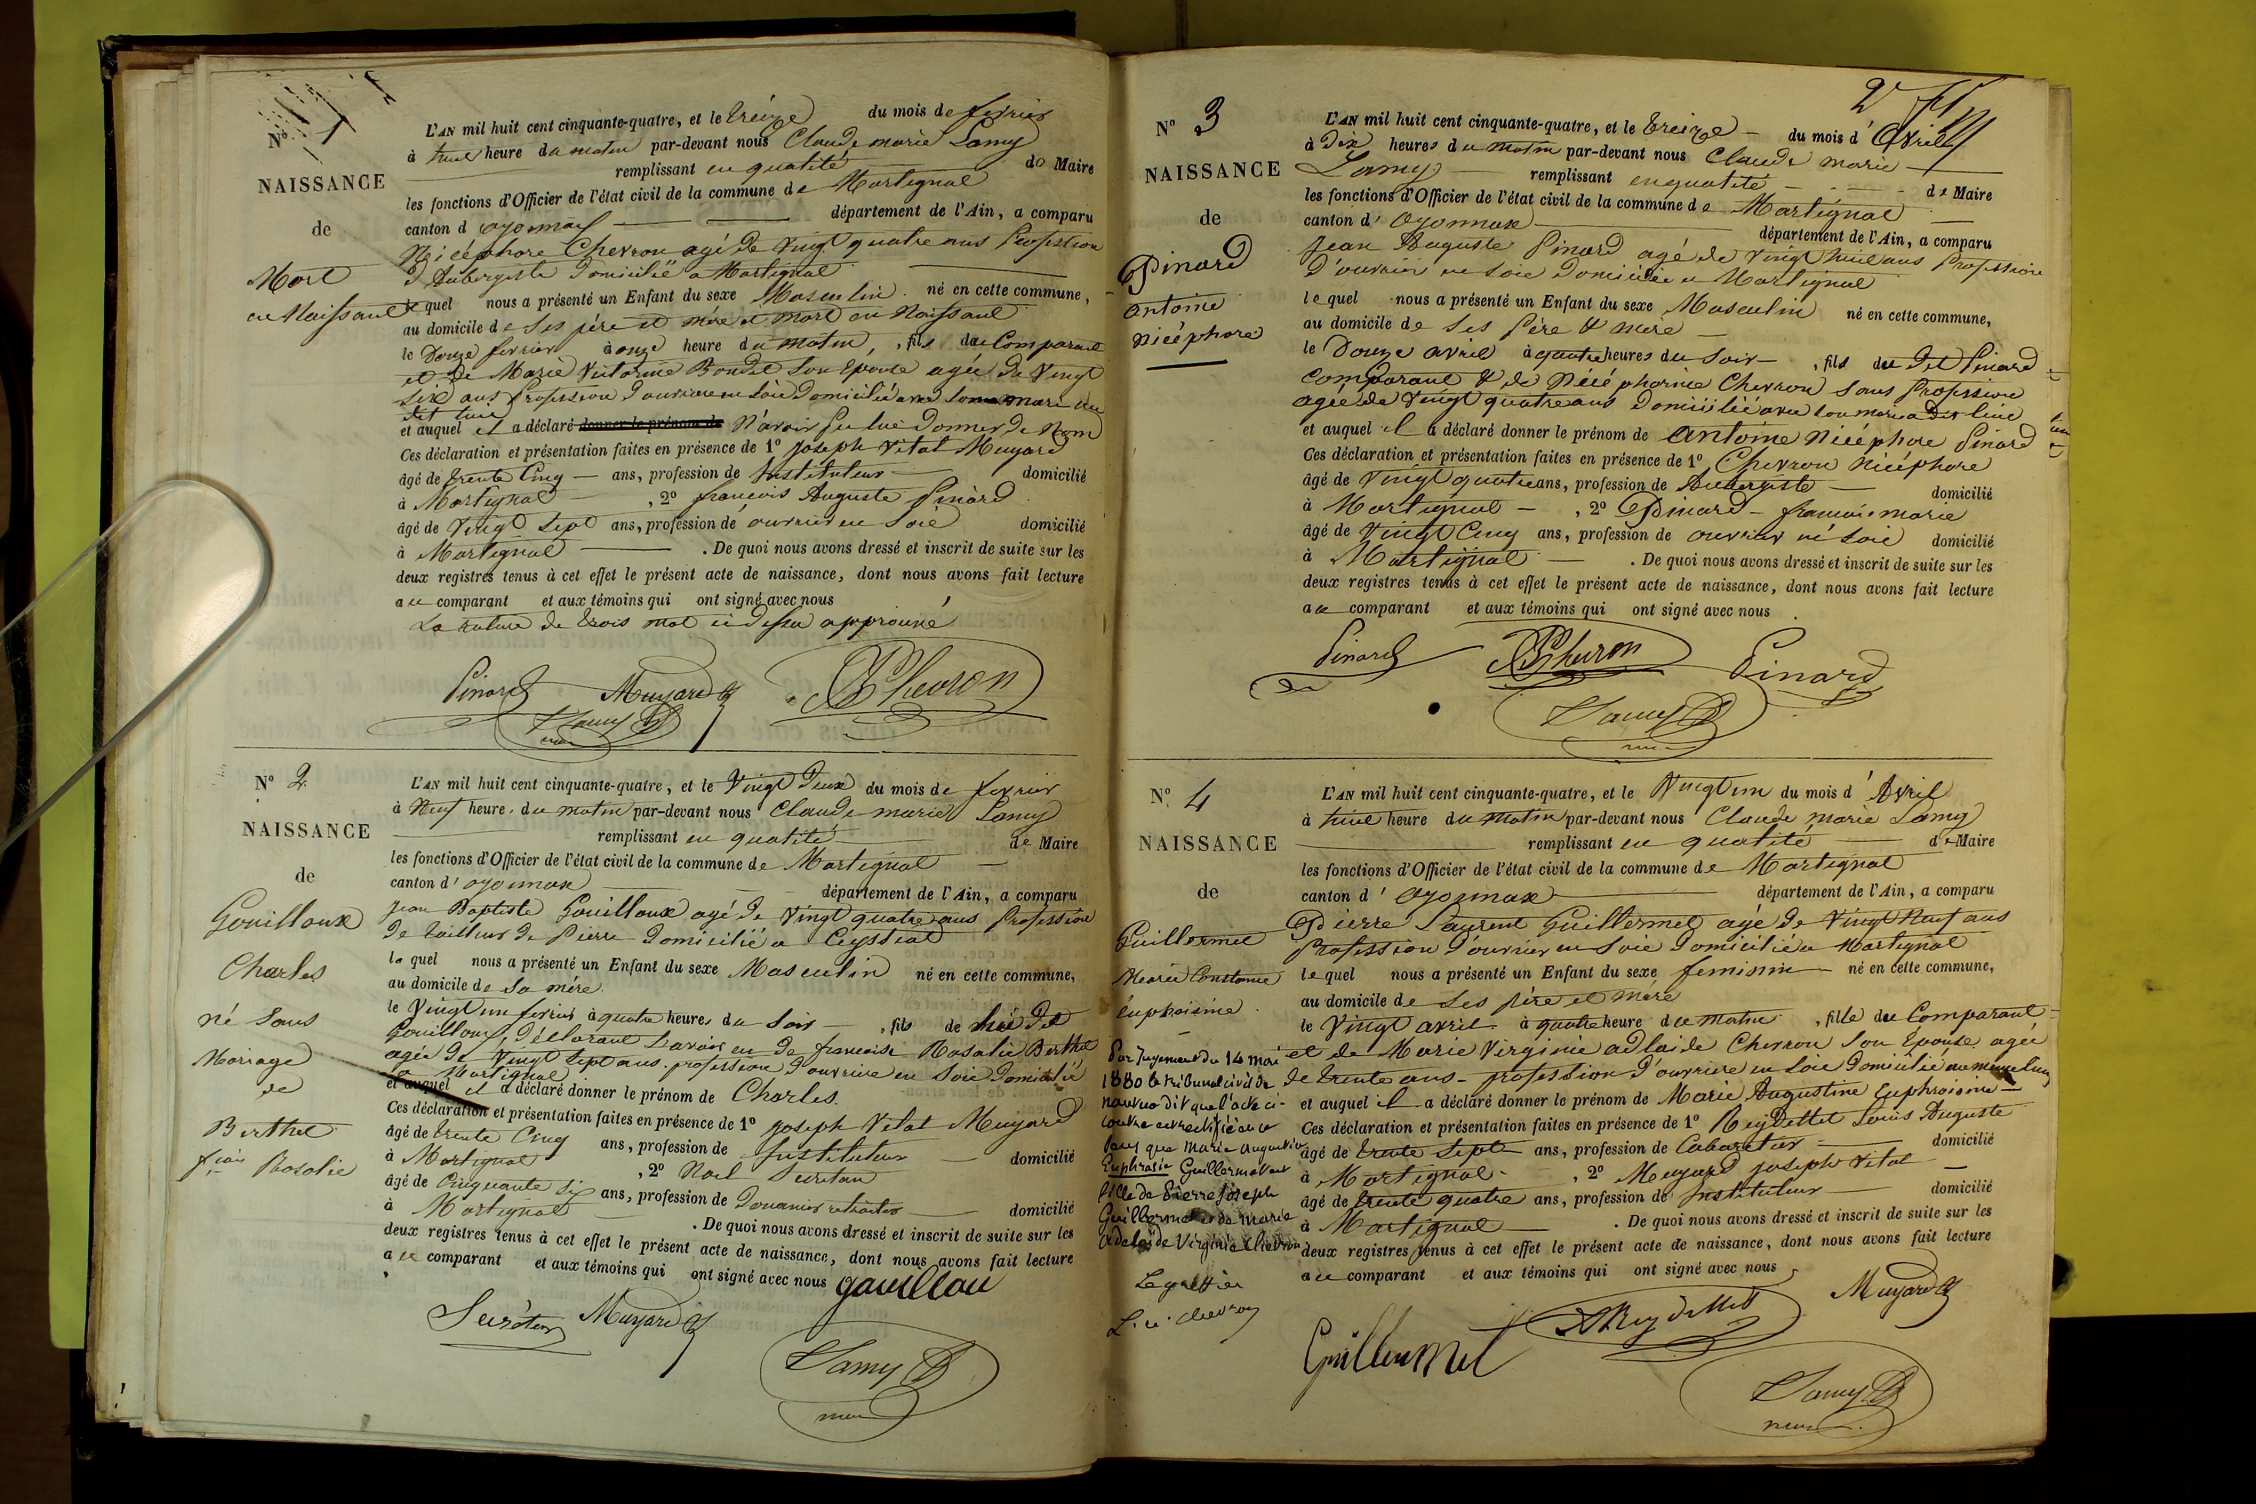 N° 1
NAISSANCE
de
Mort
en Naissant
L'AN mil huit cent cinquante-quatre, et le treize du mois de fevrier
à huit heure du matin par-devant nous Claude marie Lamy
remplissant en qualité de Maire
les fonctions d'Officier de l'état civil de la commune de Martignat
canton d oyonnax département de l'Ain, a comparu
Nicéphore Chevron agé de vingt quatre ans Profession
d'Aubergiste domicilié a Martignat
lequel nous a présenté un Enfant du sexe Masculin né en cette commune,
au domicile de ses père et mère et mort en Naissant
le Douze fevrier à onze heure du matin, fils du Comparant
et de Marie Victorine Bondet son Epouse agée de vingt
six ans Profession d'ouvriere en soie domiciliée avec son mari au
dit lieu
et auquel il a déclaré donner le prénom de N'avoir pu lui donner de Nom
Ces déclaration et présentation faites en présence de 1° Joseph Vital Muyard
âgé de trente Cinq ans, profession de Instituteur domicilié
à Martignat, 2° francois Auguste Pinard
âgé de Vingt sept ans, profession de ouvrier en soie domicilié
à Martignat. De quoi nous avons dressé et inscrit de suite sur les
deux registres tenus à cet effet le présent acte de naissance, dont nous avons fait lecture
au comparant et aux témoins qui ont signé avec nous
La rature de trois mot ci dessu approuvé
Pinard Muyard Chevron
Lamy
maire
N° 2
NAISSANCE
de
Gouilloux
Charles
né sans
Mariage
de
Berthet
fçoise Rosalie
L'AN mil huit cent cinquante-quatre, et le Vingt deux du mois de fevrier
à Neuf heure du matin par-devant nous Claude marie Lamy
remplissant en qualité de Maire
les fonctions d'Officier de l'état civil de la commune de Martignat
canton d' oyonnax département de l'Ain, a comparu
Jean Baptiste Gouilloux agé de vingt quatre ans Profession
de tailleur de Pierre domicilié a Ceyssiat
lequel nous a présenté un Enfant du sexe Masculin né en cette commune,
au domicile de sa mère
le Vingt un fevrier à quatre heures du soir, fils de lui dit
Gouilloux, déclarant l'avoir eu de francoise Rosalie Berthet
agée de Vingt sept ans. profession d'ouvriere en soie domicilié
a Martignat
et auquel il a déclaré donner le prénom de Charles.
Ces déclaration et présentation faites en présence de 1° Joseph Vital Muyard
âgé de trente Cinq ans, profession de Instituteur domicilié
à Martignat, 2° Noel Secretan
âgé de Cinquante six ans, profession de Douanier retraiter domicilié
à Martignat. De quoi nous avons dressé et inscrit de suite sur les
deux registres tenus à cet effet le présent acte de naissance, dont nous avons fait lecture
au comparant et aux témoins qui ont signé avec nous gouillou
Secretan Muyard
Lamy
maire
N° 3
NAISSANCE
de
Pinard
antoine
nicéphore
L'AN mil huit cent cinquante-quatre, et le treize du mois d' Avril
à Dix heures du matin par-devant nous Claude marie
Lamy remplissant en qualité de Maire
les fonctions d'Officier de l'état civil de la commune de Martignat
canton d' oyonnax département de l'Ain, a comparu
Jean Auguste Pinard agé de vingt huit ans Profession
d'ouvrier en soie domicilié a Martignat
lequel nous a présenté un Enfant du sexe Masculin né en cette commune,
au domicile de ses Père & mère
le Douze avril à quatre heures du soir, fils du dit Pinard
comparant & de Nicéphorine Chevron sans Profession
agée de Vingt quatre ans domiciliée avec son mari a dit lieu
et auquel il a déclaré donner le prénom de antoine Nicéphore Pinard
Ces déclaration et présentation faites en présence de 1° Chevron nicéphore
âgé de Vingt quatre ans, profession de Aubergiste domicilié
à Martignat, 2° Pinard francois marie
âgé de Vingt Cinq ans, profession de ouvrier en soie domicilié
à Martignat. De quoi nous avons dressé et inscrit de suite sur les
deux registres tenus à cet effet le présent acte de naissance, dont nous avons fait lecture
au comparant et aux témoins qui ont signé avec nous
Pinard Chevron Pinard
Lamy
maire
N° 4
NAISSANCE
de
Guillermet
Marie Constance
Euphroisine
Par Jugement du 14 mai
1880 le tribunal civil de
nantua dit que l'acte ci-
contre est rectifié en ce
sens que Marie Augustine
Euphrasie Guillermet est
fille de Pierre Joseph
Guillermet et de Marie
Adelaïde Virginie Chevron
Le greffier
L'AN mil huit cent cinquante-quatre, et le Vingt un du mois d' Avril
à huit heure du matin par-devant nous Claude marie Lamy
remplissant en qualité de Maire
les fonctions d'Officier de l'état civil de la commune de Martignat
canton d' oyonnax département de l'Ain, a comparu
Pierre Laurent Guillermet agé de Vingt Neuf ans
Profession d'ouvrier en soie domicilié a Martignat
lequel nous a présenté un Enfant du sexe feminin né en cette commune,
au domicile de ses père et mère
le Vingt avril à quatre heure du matin, fille du Comparant
et de Marie Virginie adlaide Chevron son Epouse agée
de trente ans profession d'ouvriere en soie domiciliée au meme lieu
et auquel il a déclaré donner le prénom de Marie Augustine Euphroisine
Ces déclaration et présentation faites en présence de 1° Reydellet Louis Auguste
âgé de trente sept ans, profession de Cabaretier domicilié
à Martignat, 2° Muyard joseph vital
âgé de trente quatre ans, profession de Instituteur domicilié
à Martignat. De quoi nous avons dressé et inscrit de suite sur les
deux registres tenus à cet effet le présent acte de naissance, dont nous avons fait lecture
au comparant et aux témoins qui ont signé avec nous
Guillermet Reydellet Muyard
Lamy
maire